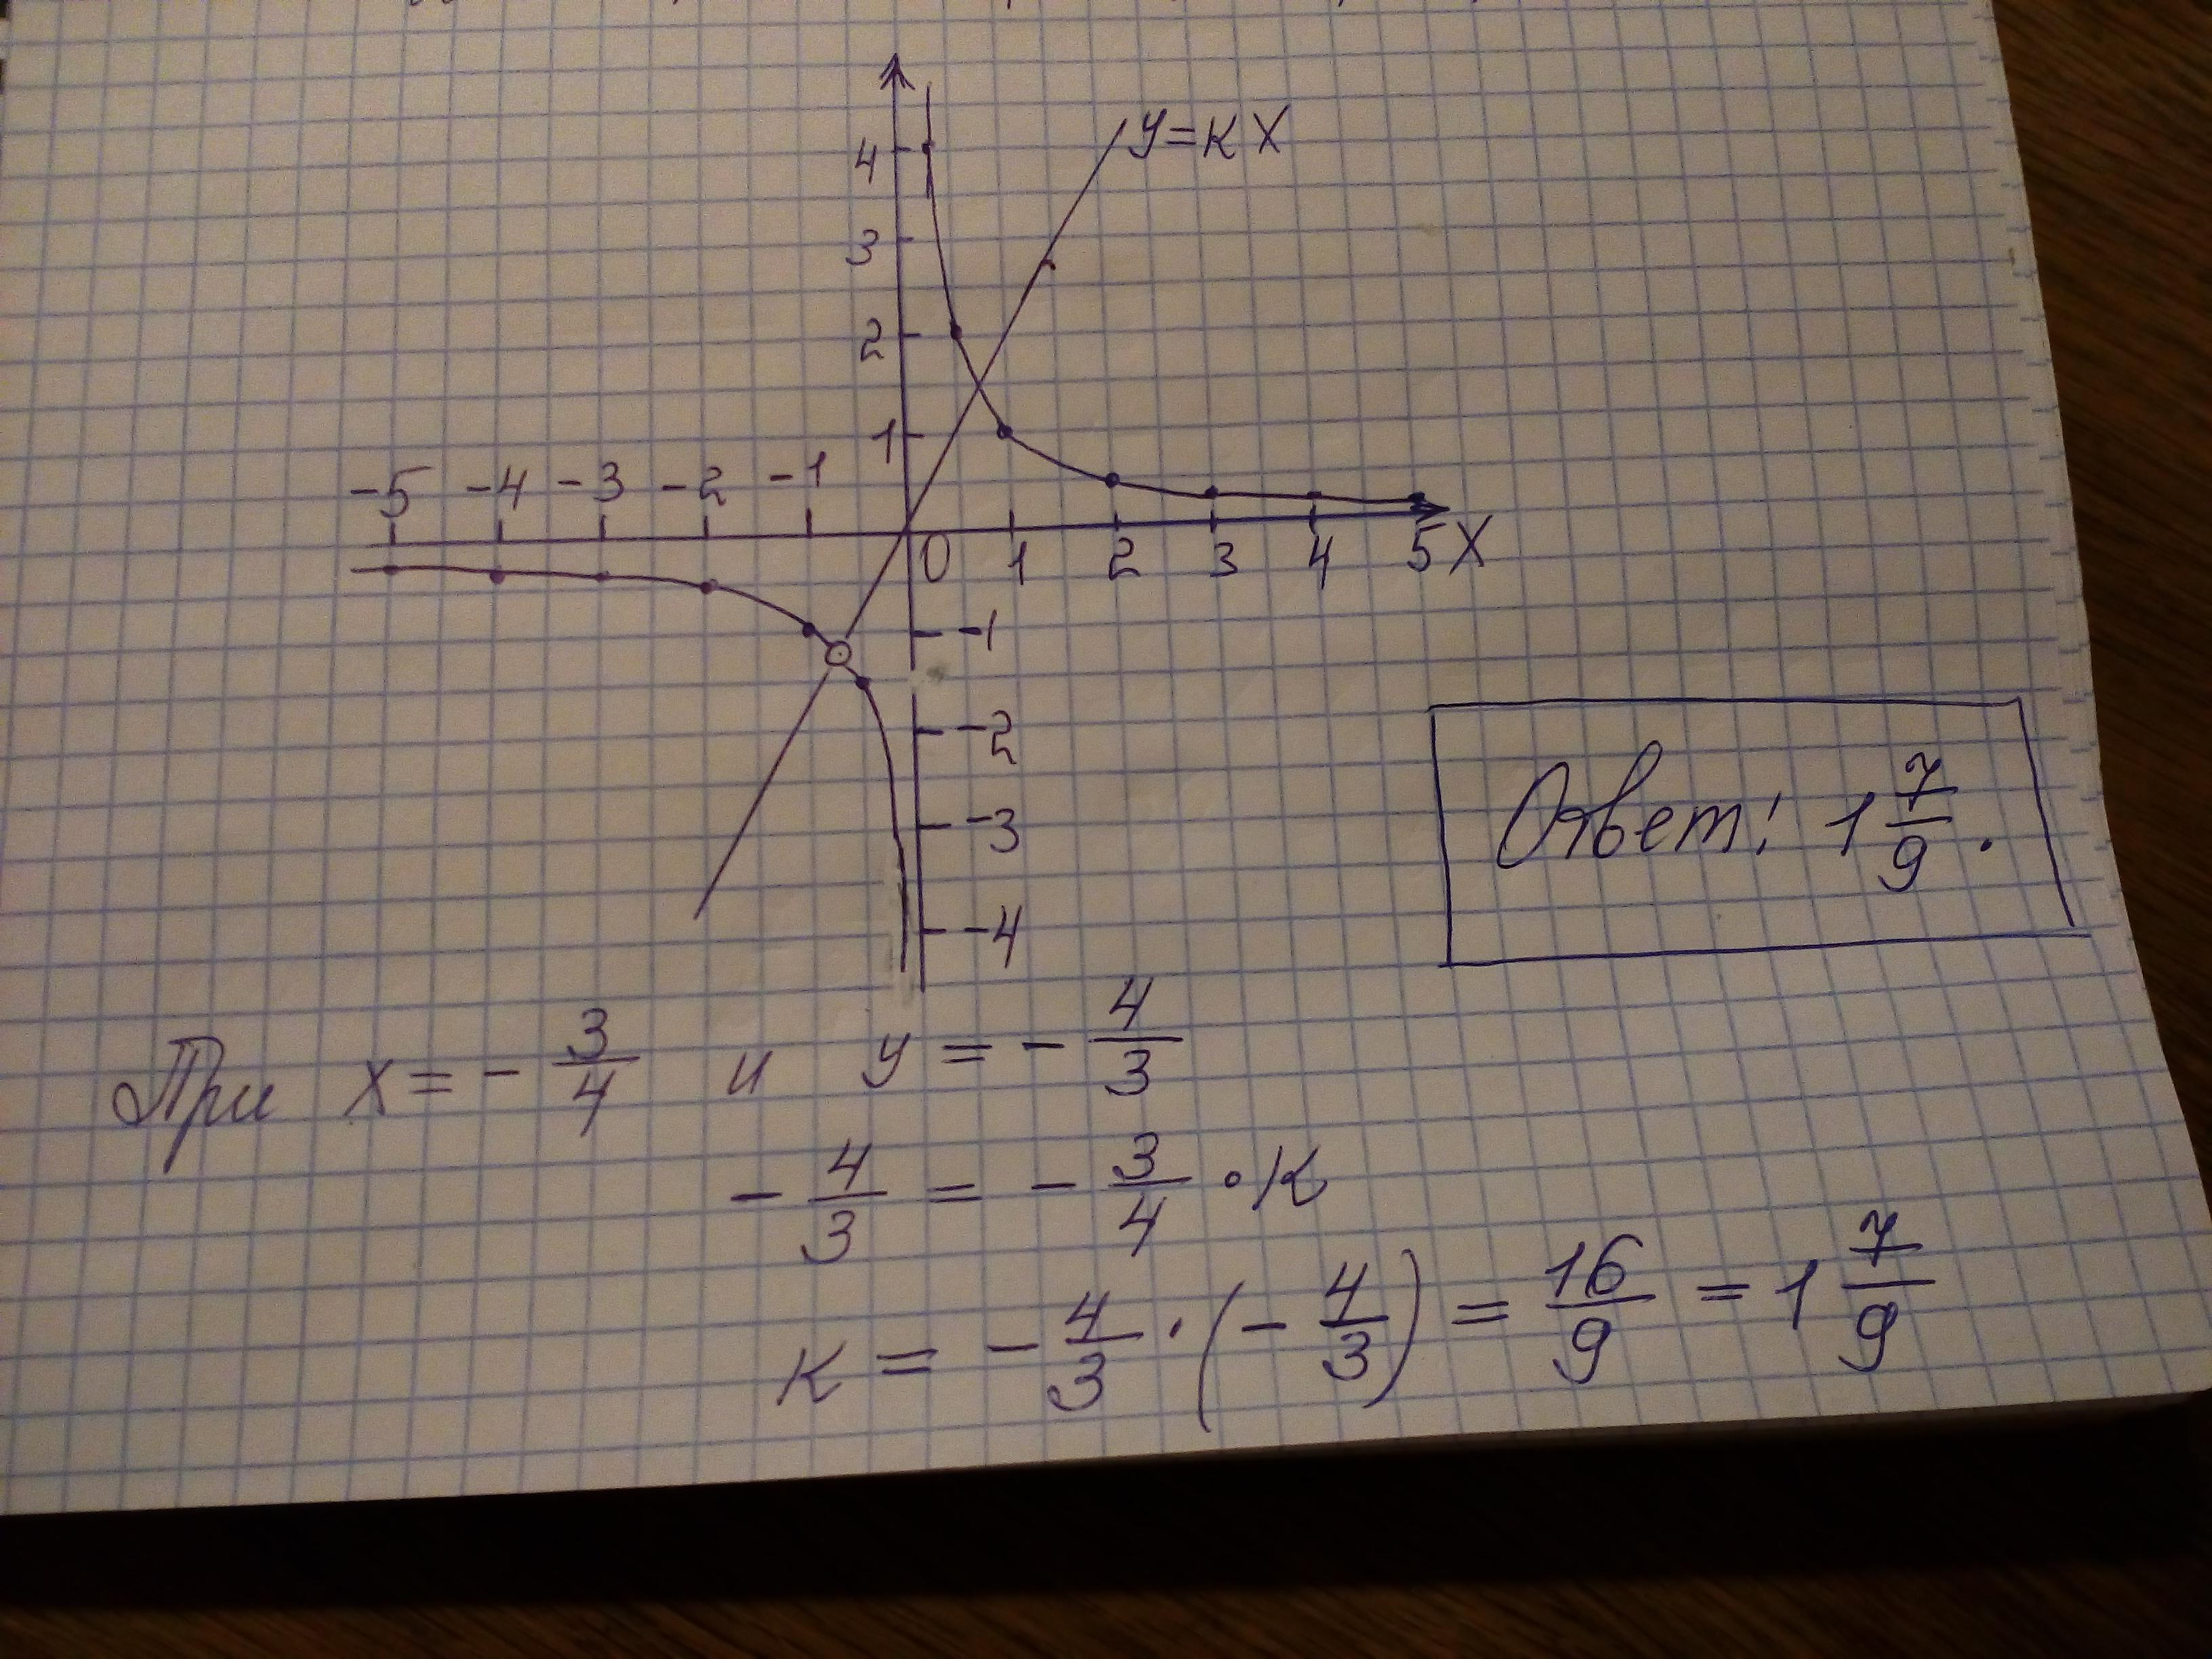 y = кx
4
3
2
1
-5 -4 -3 -2 -1
0 1 2 3 4 5 X
-1
-2
-3
-4
Ответ: 1 7/9.
При x = - 3/4 и y = - 4/3
- 4/3 = - 3/4 · к
к = - 4/3 · (- 4/3) = 16/9 = 1 7/9